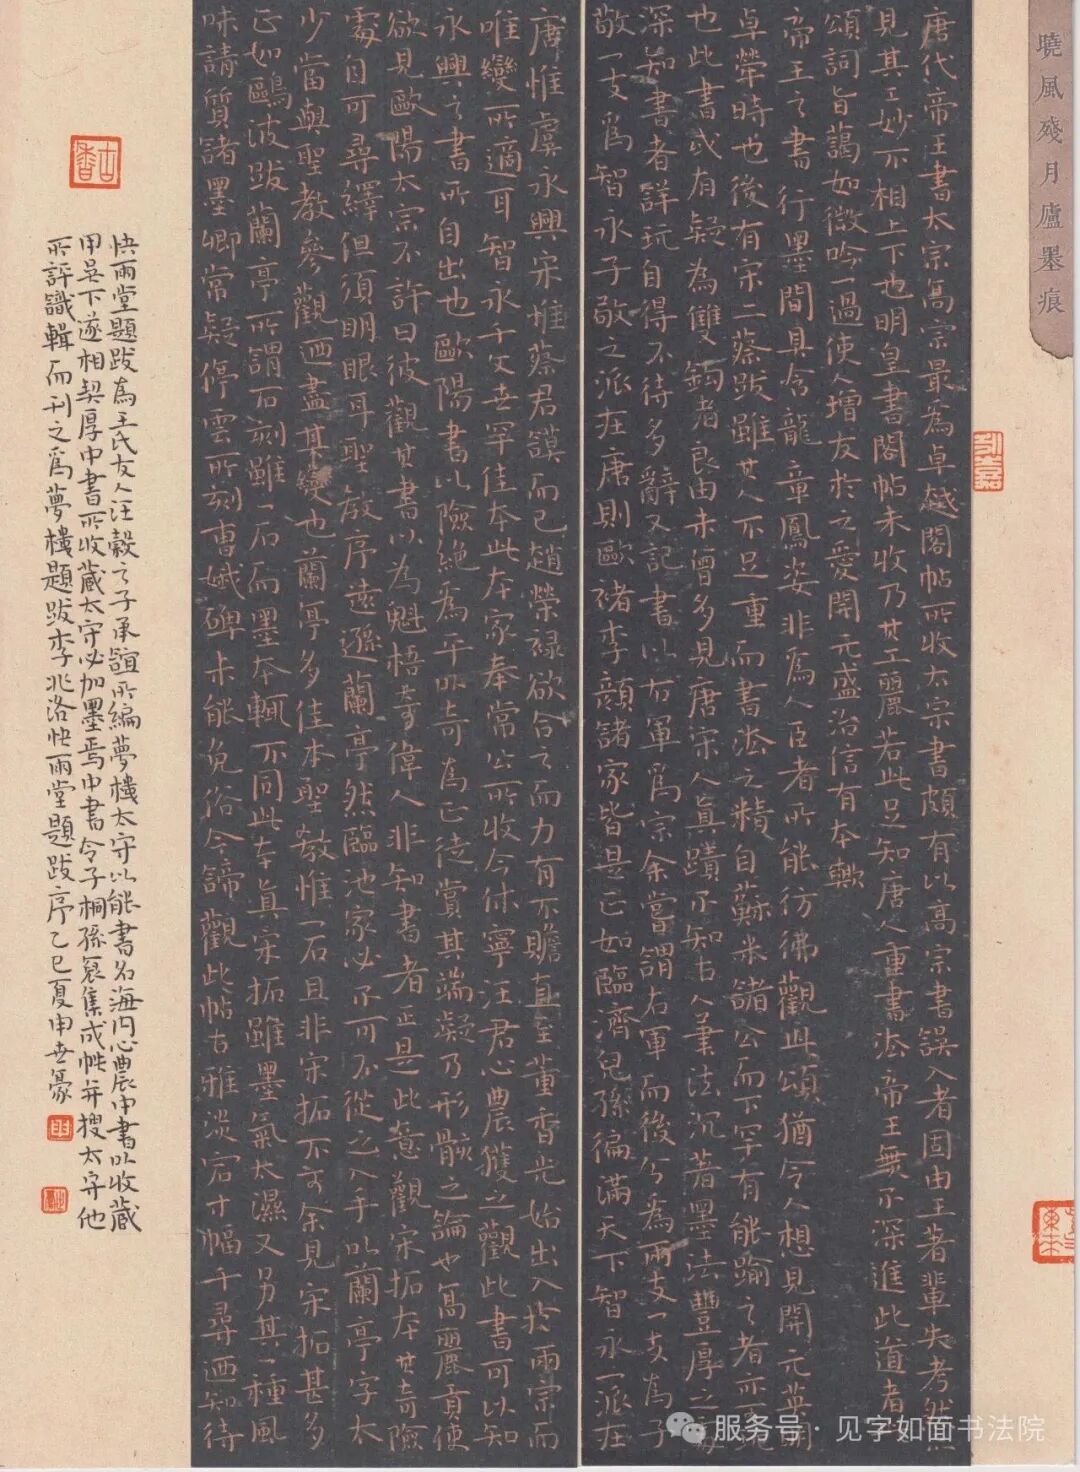 曉風殘月廬墨痕
唐代帝王書太宗高宗最為卓越閣帖所收太宗書頗有以高宗書誤入者固由王著輩失考然
見其工妙不相上下也明皇書閣帖未收乃其工麗若此足知唐人重書法帝王無不深進此道者
頌詞旨藹如微吟一過使人增友於之愛開元盛治信有本歟
帝王之書行墨間具含龍章鳳姿非為人臣者所能彷彿觀此頌猶令人想見開元英明
卓犖時也後有宋二蔡跋雖其人不足重而書法之精自蘇米諸公而下罕有能踰之者亦
也此書或有疑為雙鈎者良由未曾多見唐宋人真蹟不知古人筆法沉著墨法豐厚之
深知書者詳玩自得不待多辭又記書以右軍為宗余嘗謂右軍而後分為兩支一支為子
敬一支為智永子敬之派在唐則歐褚李顏諸家皆是正如臨濟兒孫徧滿天下智永一派在
唐惟虞永興宋惟蔡君謨而已趙榮祿欲合之而力有不贍直至董香光始出入於兩宗而
唯變所適耳智永千文世罕佳本此本家奉常公所收今休寧汪君心農獲之觀此書可以知
永興之書所自出也歐陽書以險絕為平以奇為正徒賞其端凝乃形骸之論也高麗貢使
欲見歐陽太宗不許曰彼觀其書以為魁梧奇偉人非知書者正是此意觀宋拓本其奇險
處自可尋繹但須明眼耳聖教序遠遜蘭亭然臨池家必不可不從之入手以蘭亭字太
少當與聖教參觀迺盡其變也蘭亭多佳本聖教惟一石且非宋拓不可余見宋拓甚多
正如鷗波跋蘭亭所謂石刻雖一石而墨本輒不同此本真宋拓雖墨氣太濕又另其一種風
味請質諸墨卿常疑停雲所刻曹娥碑未能免俗今諦觀此帖古雅淡宕寸幅千尋迺知待
快雨堂題跋為王氏友人汪穀之子承誼所編夢樓太守以能書名海內心農中書以收藏
甲吳下遂相契厚中書所收藏太守必加墨焉中書令子桐孫裒集成帙并搜太守他
所評識輯而刊之為夢樓題跋李兆洛快雨堂題跋序乙巳夏申世豪
服务号·见字如面书法院